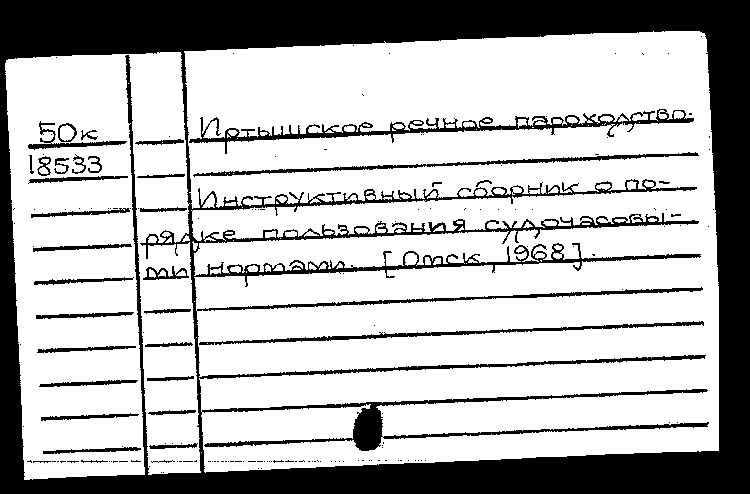 50к Иртышское речное пароходство.
18533
Инструктивный сборник о по-
рядке пользования судочасовы-
ми нормами. [Омск, 1968].